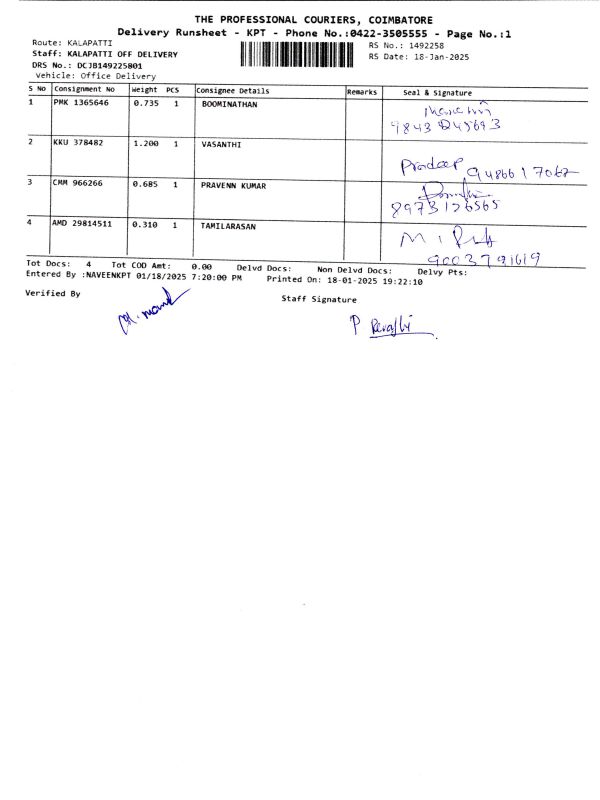 THE PROFESSIONAL COURIERS, COIMBATORE
Delivery Runsheet - KPT - Phone No.:0422-3505555 - Page No.:1
Route: KALAPATTI RS No.: 1492258
Staff: KALAPATTI OFF DELIVERY RS Date: 18-Jan-2025
DRS No.: DCJB149225801
Vehicle: Office Delivery
S No Consignment No Weight PCS Consignee Details Remarks Seal & Signature
1 PMK 1365646 0.735 1 BOOMINATHAN
2 KKU 378482 1.200 1 VASANTHI
Pradeep
3 CMM 966266 0.685 1 PRAVENN KUMAR
8973126565
4 AMD 29814511 0.310 1 TAMILARASAN
9003791619
Tot Docs: 4 Tot COD Amt: 0.00 Delvd Docs: Non Delvd Docs: Delvy Pts:
Entered By :NAVEENKPT 01/18/2025 7:20:00 PM Printed On: 18-01-2025 19:22:10
Verified By Staff Signature